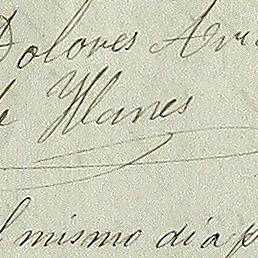 Dolores Arr
de Yllanes
el mismo dia p